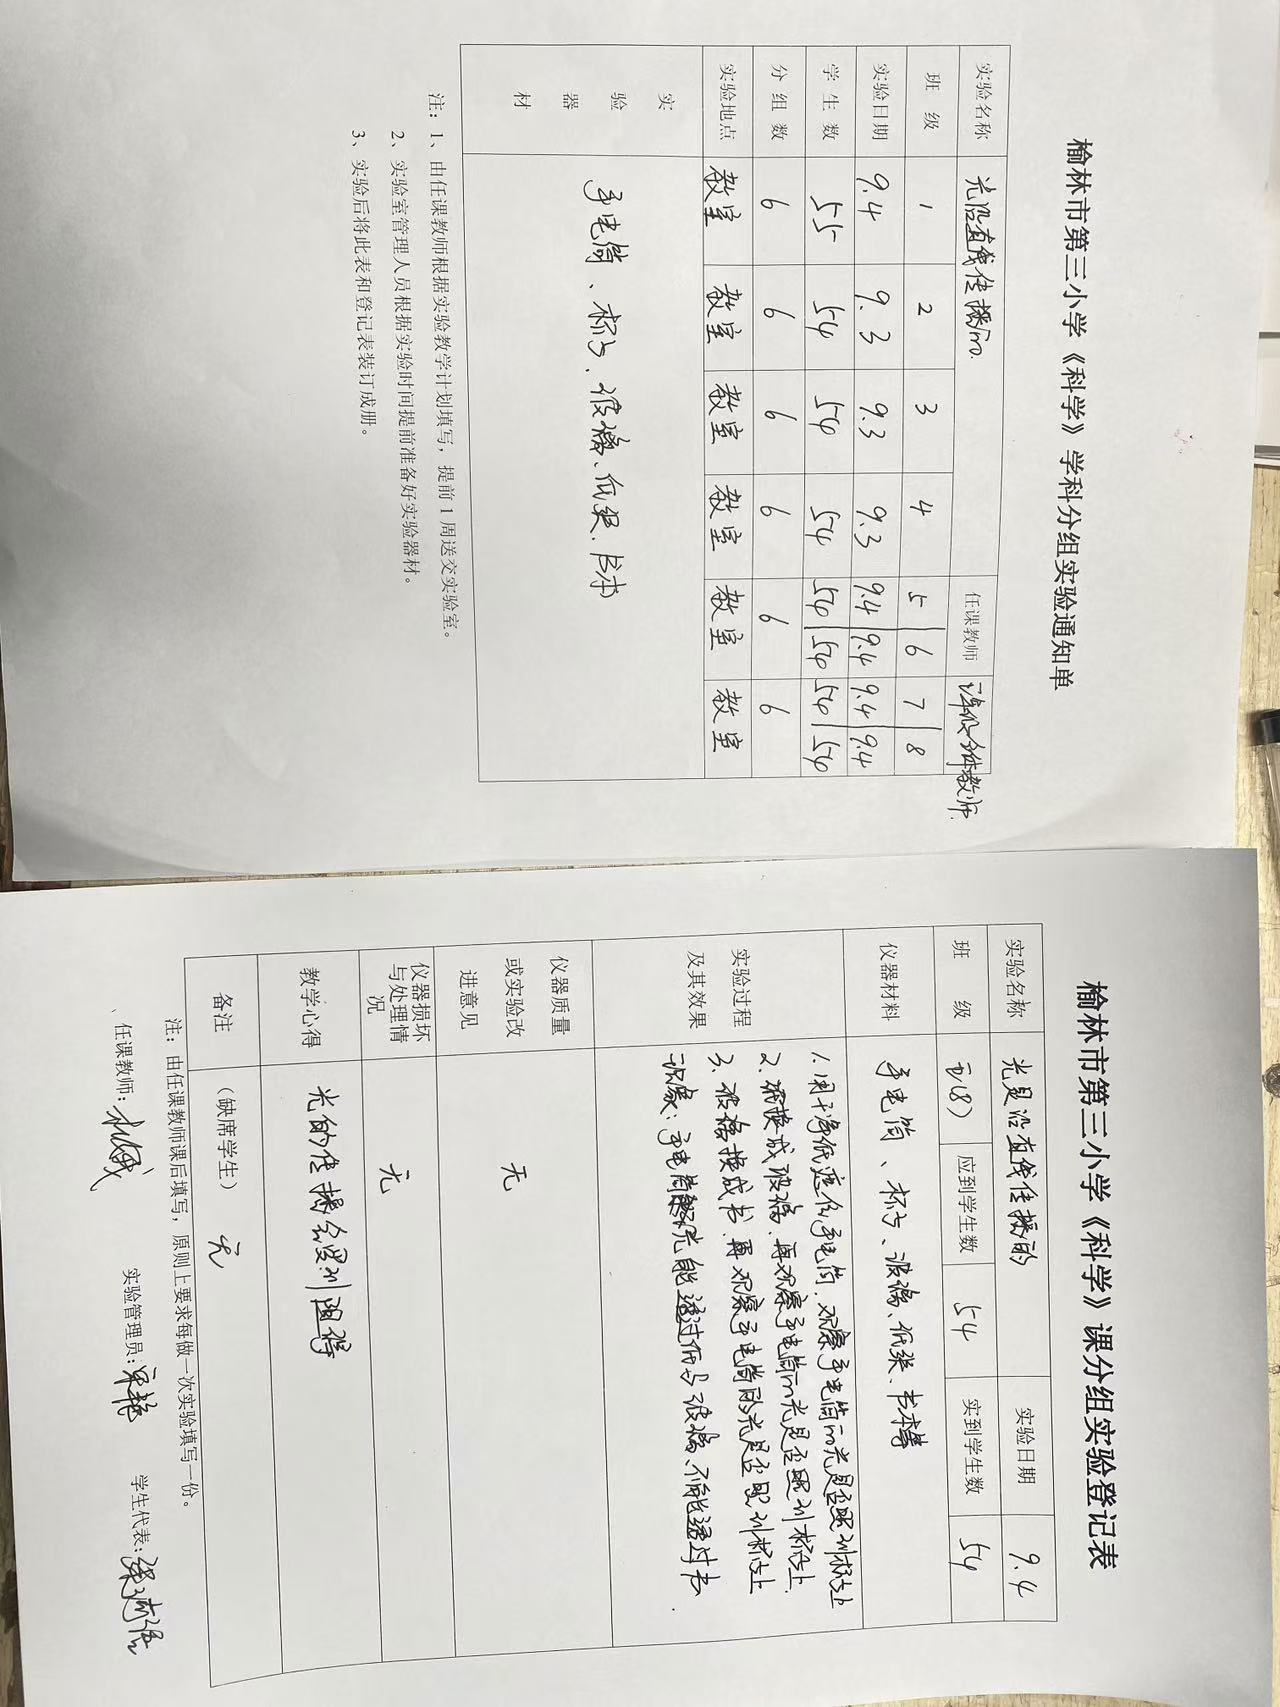 榆林市第三小学《科学》学科分组实验通知单
实验名称 光沿直线传播的 任课教师 教师
班 级 1 2 3 4 5 6 7 8
实验日期 9.4 9.3 9.3 9.3 9.4 9.4 9.4 9.4
学 生 数 55 54 54 54 54 54 54 54
分 组 数 6 6 6 6 6 6
实验地点 教室 教室 教室 教室 教室 教室
实验器材 手电筒、杯子、玻璃、纸张、书本
注：1、由任课教师根据实验教学计划填写，提前 1 周送交实验室。
2、实验室管理人员根据实验时间提前准备好实验器材。
3、实验后将此表和登记表装订成册。
榆林市第三小学《科学》课分组实验登记表
实验名称 光是沿直线传播的 实验日期 9.4
班 级 五(8) 应到学生数 54 实到学生数 54
仪器材料 手电筒、杯子、玻璃、纸张、书本等
实验过程及其效果
1.用 纸 手电筒，观察手电筒的光是否照到杯子上
2. 换成玻璃，再观察手电筒的光是否照到杯子上
3、玻璃换成书，再观察手电筒的光是否照到杯子上
效果：手电筒 光能透过纸与玻璃，不能透过书.
仪器质量或实验改进意见 无
仪器损坏与处理情况 无
教学心得 光的传播会受到阻碍
备注 （缺席学生） 无
注：由任课教师课后填写，原则上要求每做一次实验填写一份。
任课教师： 实验管理员： 学生代表：